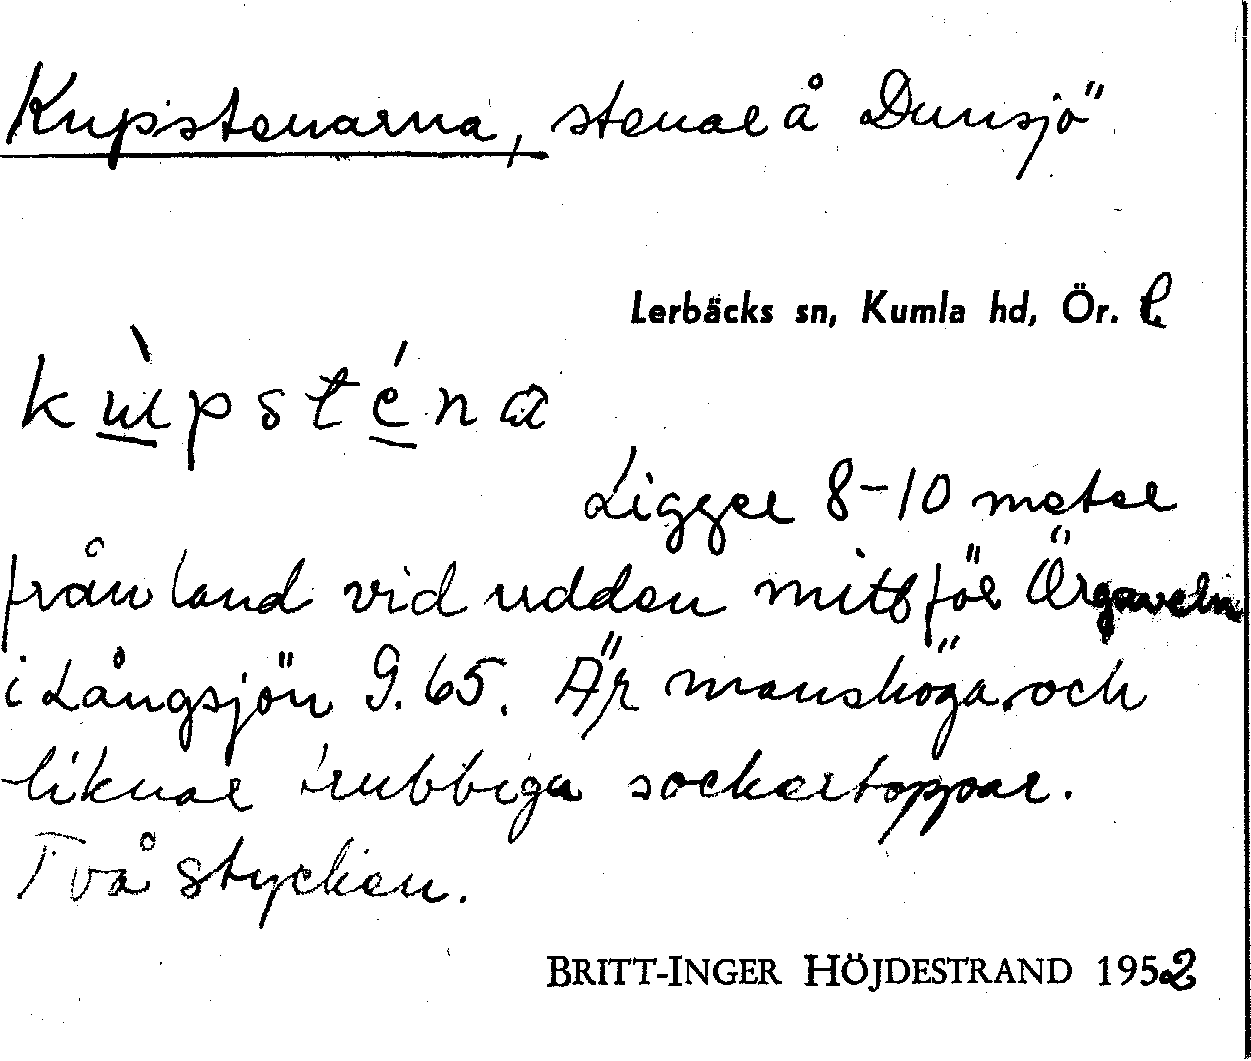 Kupstenarna, stenar å Dunsjö
Lerbäcks sn, Kumla hd, Ör. l.
kùpsténa
Ligger 8-10 meter
från land vid udden mitt för Örgaveln
i Långsjön 9.65. Är manshöga och
liknar trubbiga sockertoppar.
Två stycken.
BRITT-INGER HÖJDESTRAND 1952